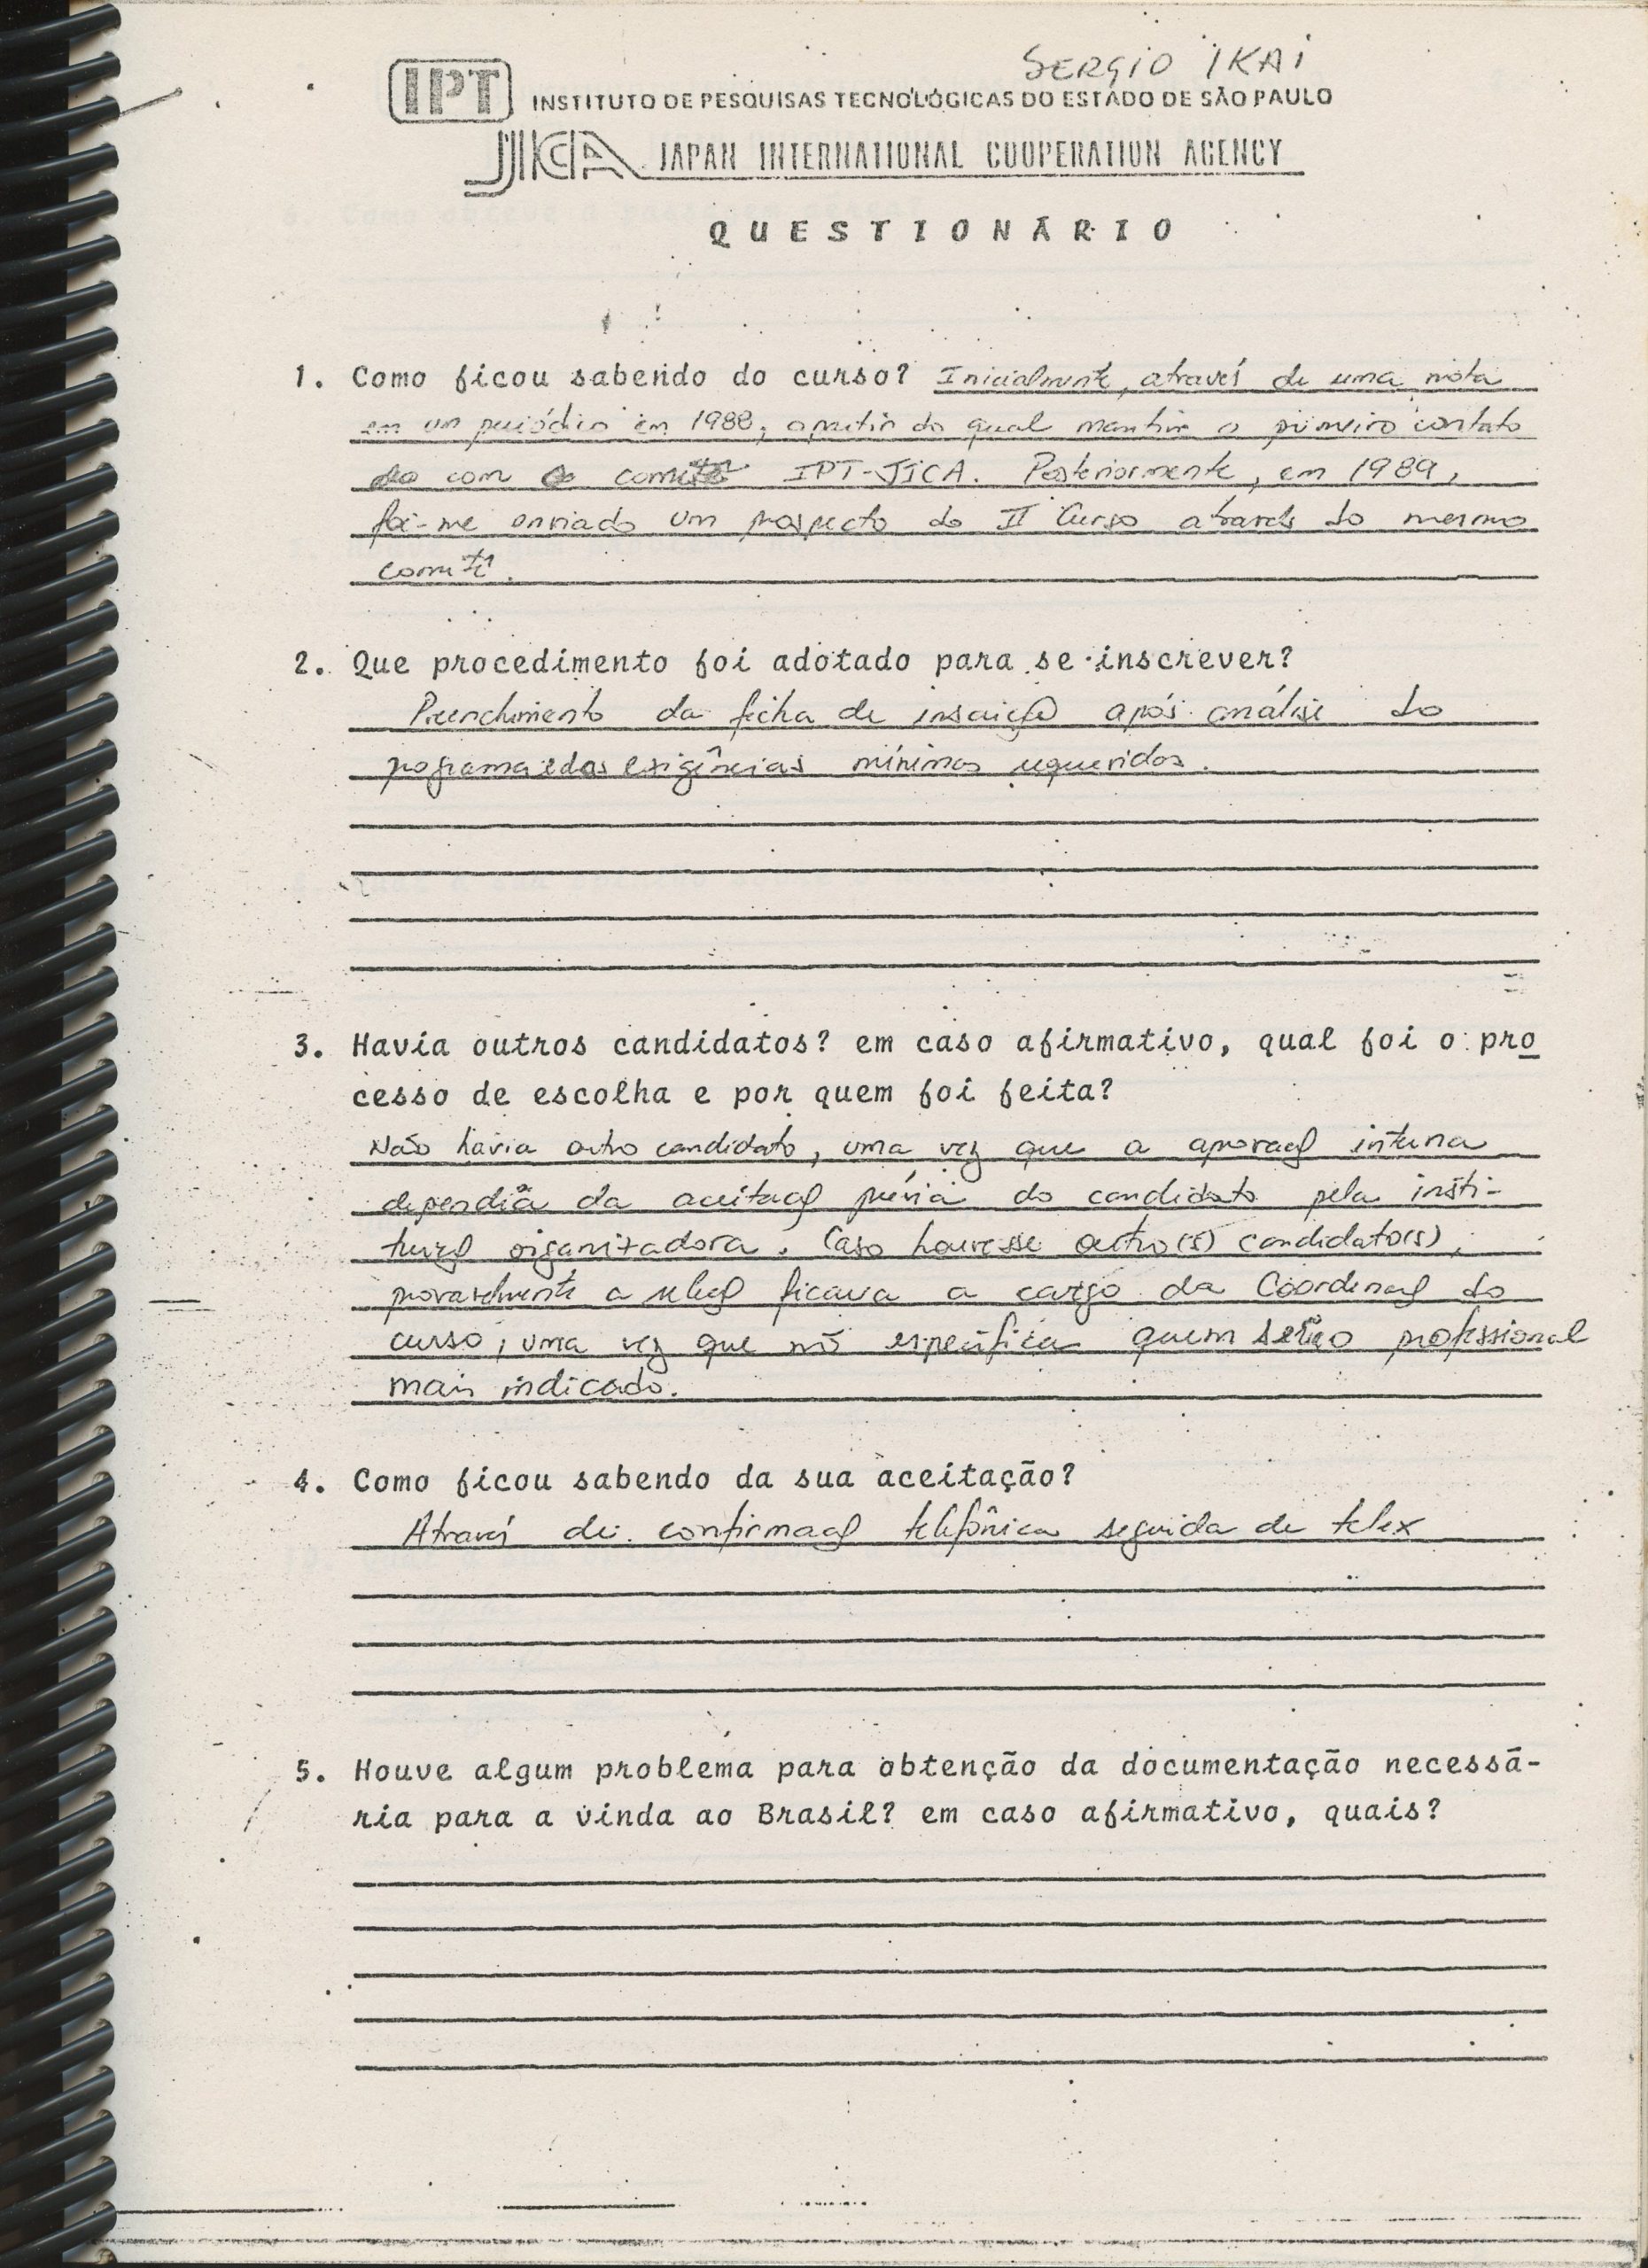 SERGIO IKAI
IPT INSTITUTO DE PESQUISAS TECNOLÓGICAS DO ESTADO DE SÃO PAULO
JICA JAPAN INTERNATIONAL COOPERATION AGENCY
QUESTIONÁRIO
1. Como ficou sabendo do curso? Inicialmente, através de uma nota
em um periódico em 1988, a partir do qual mantive o primeiro contato
com o comitê IPT-JICA. Posteriormente, em 1989,
foi-me enviado um prospecto do II Curso através do mesmo
comitê.
2. Que procedimento foi adotado para se inscrever?
Preenchimento da ficha de inscrição após análise do
programa e das exigências mínimas requeridas.
3. Havia outros candidatos? em caso afirmativo, qual foi o pro
cesso de escolha e por quem foi feita?
Não havia outro candidato, uma vez que a aprovação interna
dependia da aceitação prévia do candidato pela insti-
tuição organizadora. Caso houvesse outro(s) candidato(s),
provavelmente a seleção ficava a cargo da Coordenação do
curso, uma vez que não especifica quem o profissional
mais indicado.
4. Como ficou sabendo da sua aceitação?
Através de confirmação telefônica seguida de telex
5. Houve algum problema para obtenção da documentação necessá-
ria para a vinda ao Brasil? em caso afirmativo, quais?